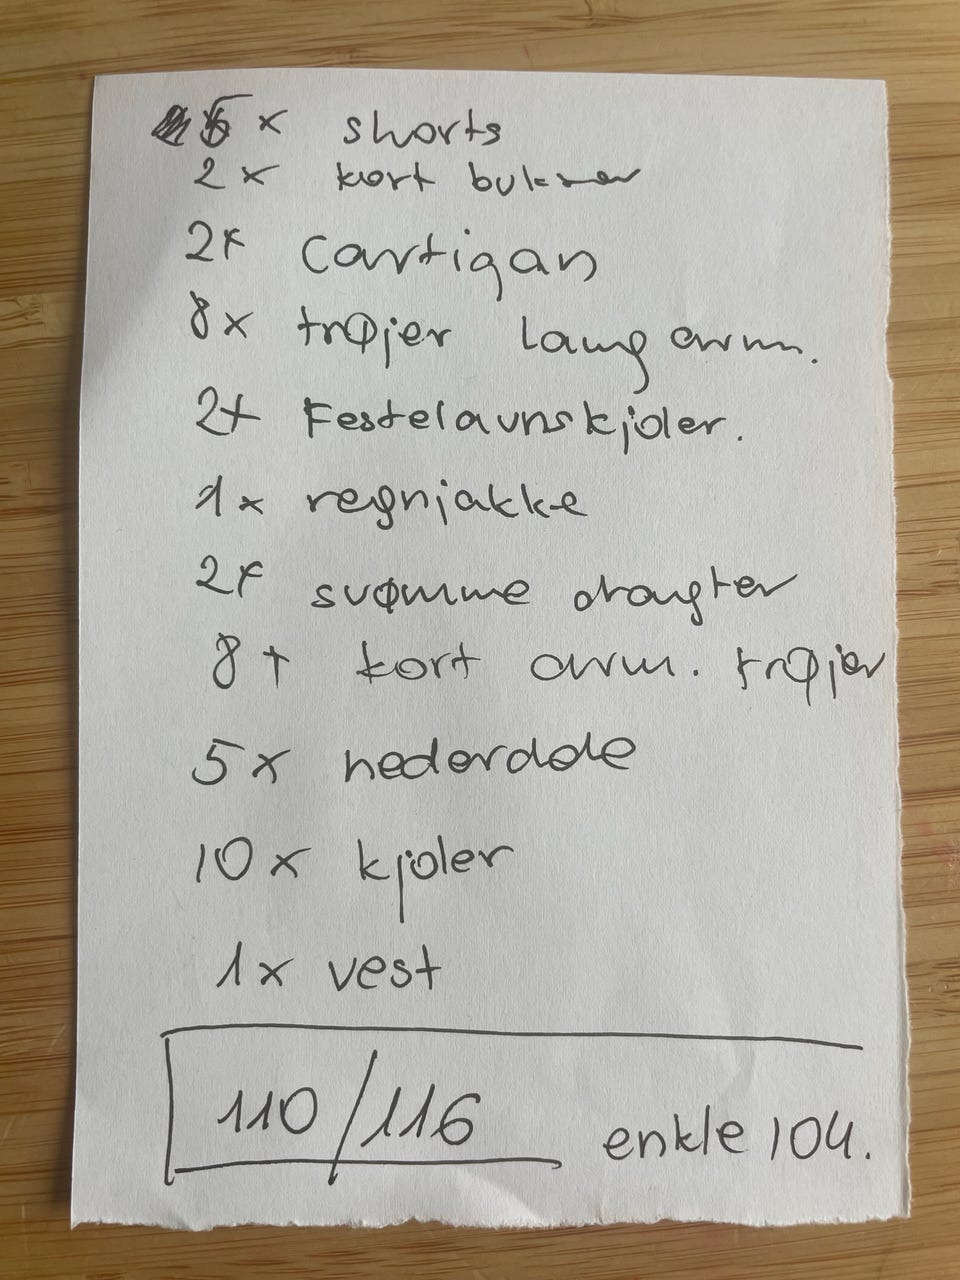 x shorts
2x kort bukser
2x Cartigan
8x trøjer lang arm.
2x Festelavnskjoler.
1x regnjakke
2x svømme dragter
8x kort arm. trøjer
5x nederdele
10x kjoler
1x vest
110/116 enkle 104.